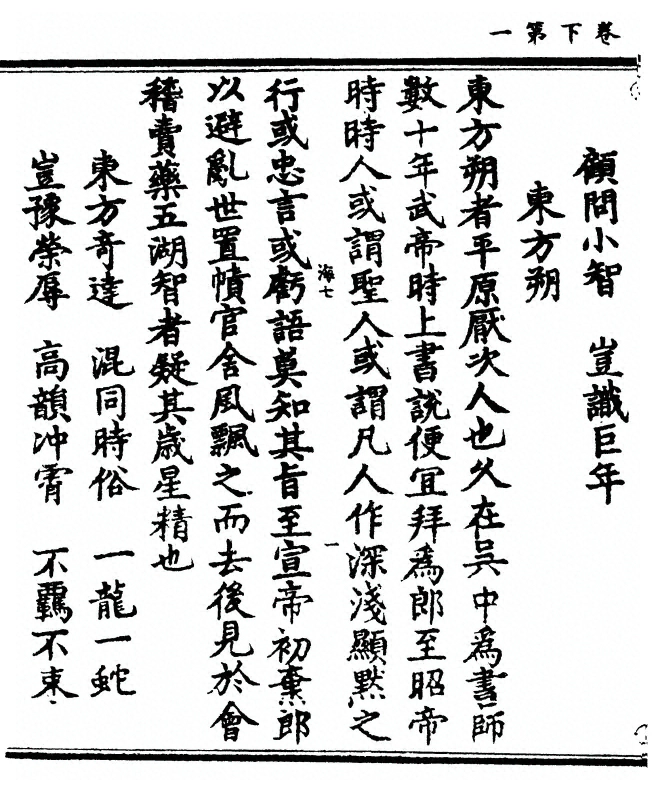 卷下第一
顧問小智 豈識巨年
東方朔
東方朔者平原厭次人也久在吳中為書師
數十年武帝時上書說便宜拜為郎至昭帝
時時人或謂聖人或謂凡人作深淺顯默之
海七
一
行或忠言或戲語莫知其旨至宣帝初棄郎
以避亂世置幘官舍風飄之而去後見於會
稽賣藥五湖智者疑其歲星精也
東方奇達 混同時俗 一龍一蛇
豈豫榮辱 高韻冲霄 不羈不束